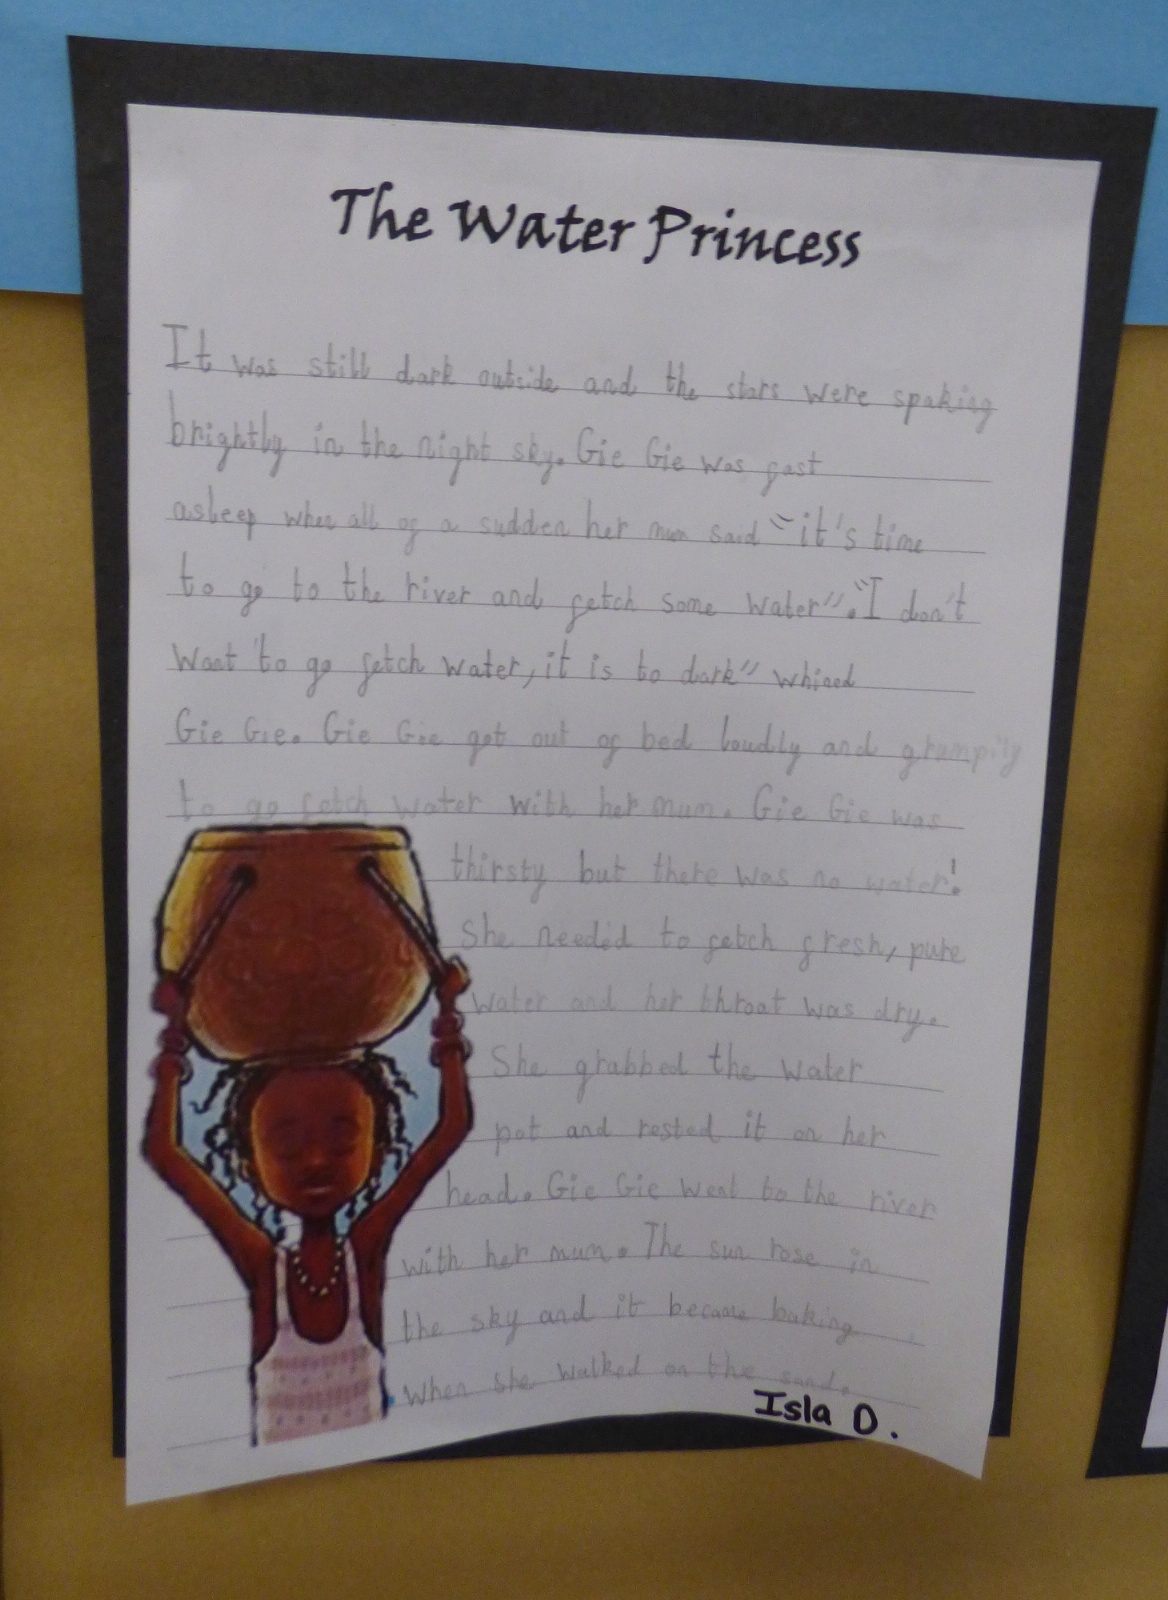 The Water Princess
It was still dark outside and the stars were spaking
brightly in the night sky. Gie Gie was fast
asleep when all of a sudden her mum said "it's time
to go to the river and fetch some water"."I don't
want to go fetch water, it is to dark" whined
Gie Gie. Gie Gie got out of bed loudly and grumpily
to go fetch water with her mum. Gie Gie was
thirsty but there was no water!
She needed to fetch fresh, pure
water and her throat was dry.
She grabbed the water
pot and rested it on her
head. Gie Gie went to the river
with her mum. The sun rose in
the sky and it became baking
when she walked on the sand.
Isla D.